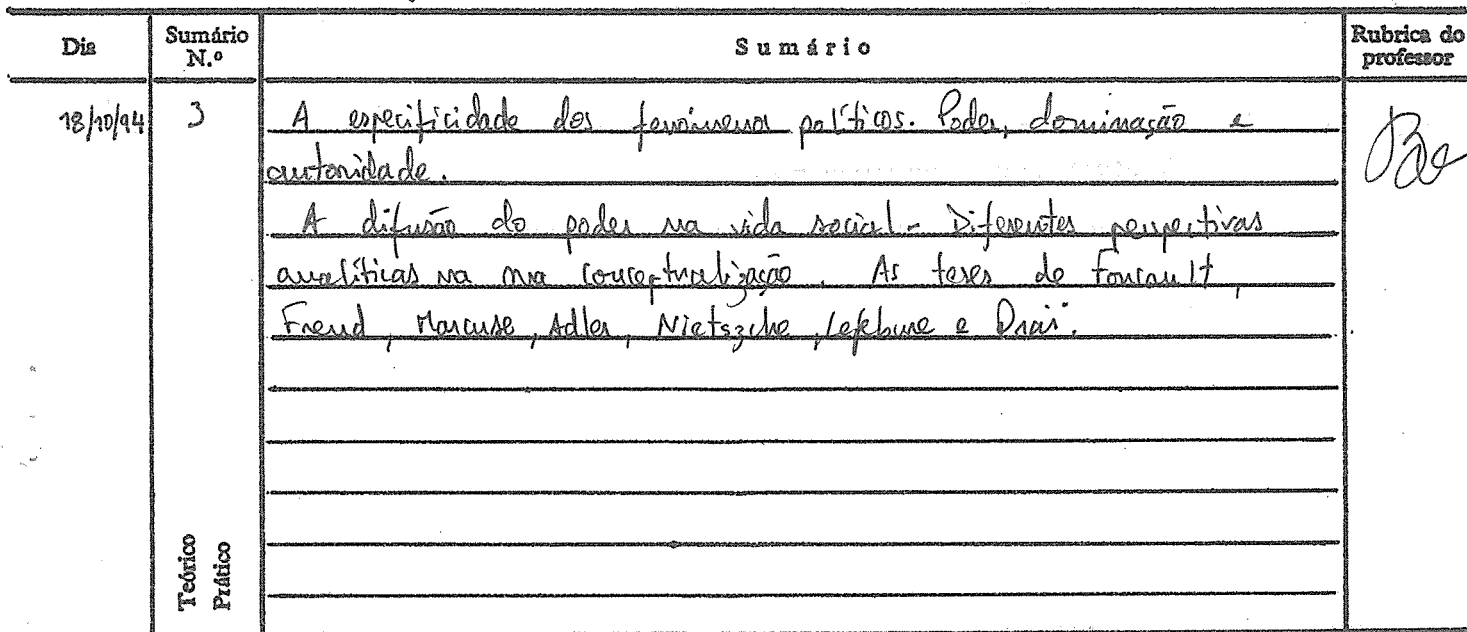 Dia
Sumário N.º
Sumário
Rubrica do professor
18/10/94
3
A especificidade dos fenómenos políticos. Poder, dominação e
autoridade.
A difusão do poder na vida social - Diferentes perspectivas
analíticas na sua conceptualização. As teses de Foucault,
Freud, Marcuse, Adler, Nietszche, Lefebvre e Drai.
Teórico
Prático